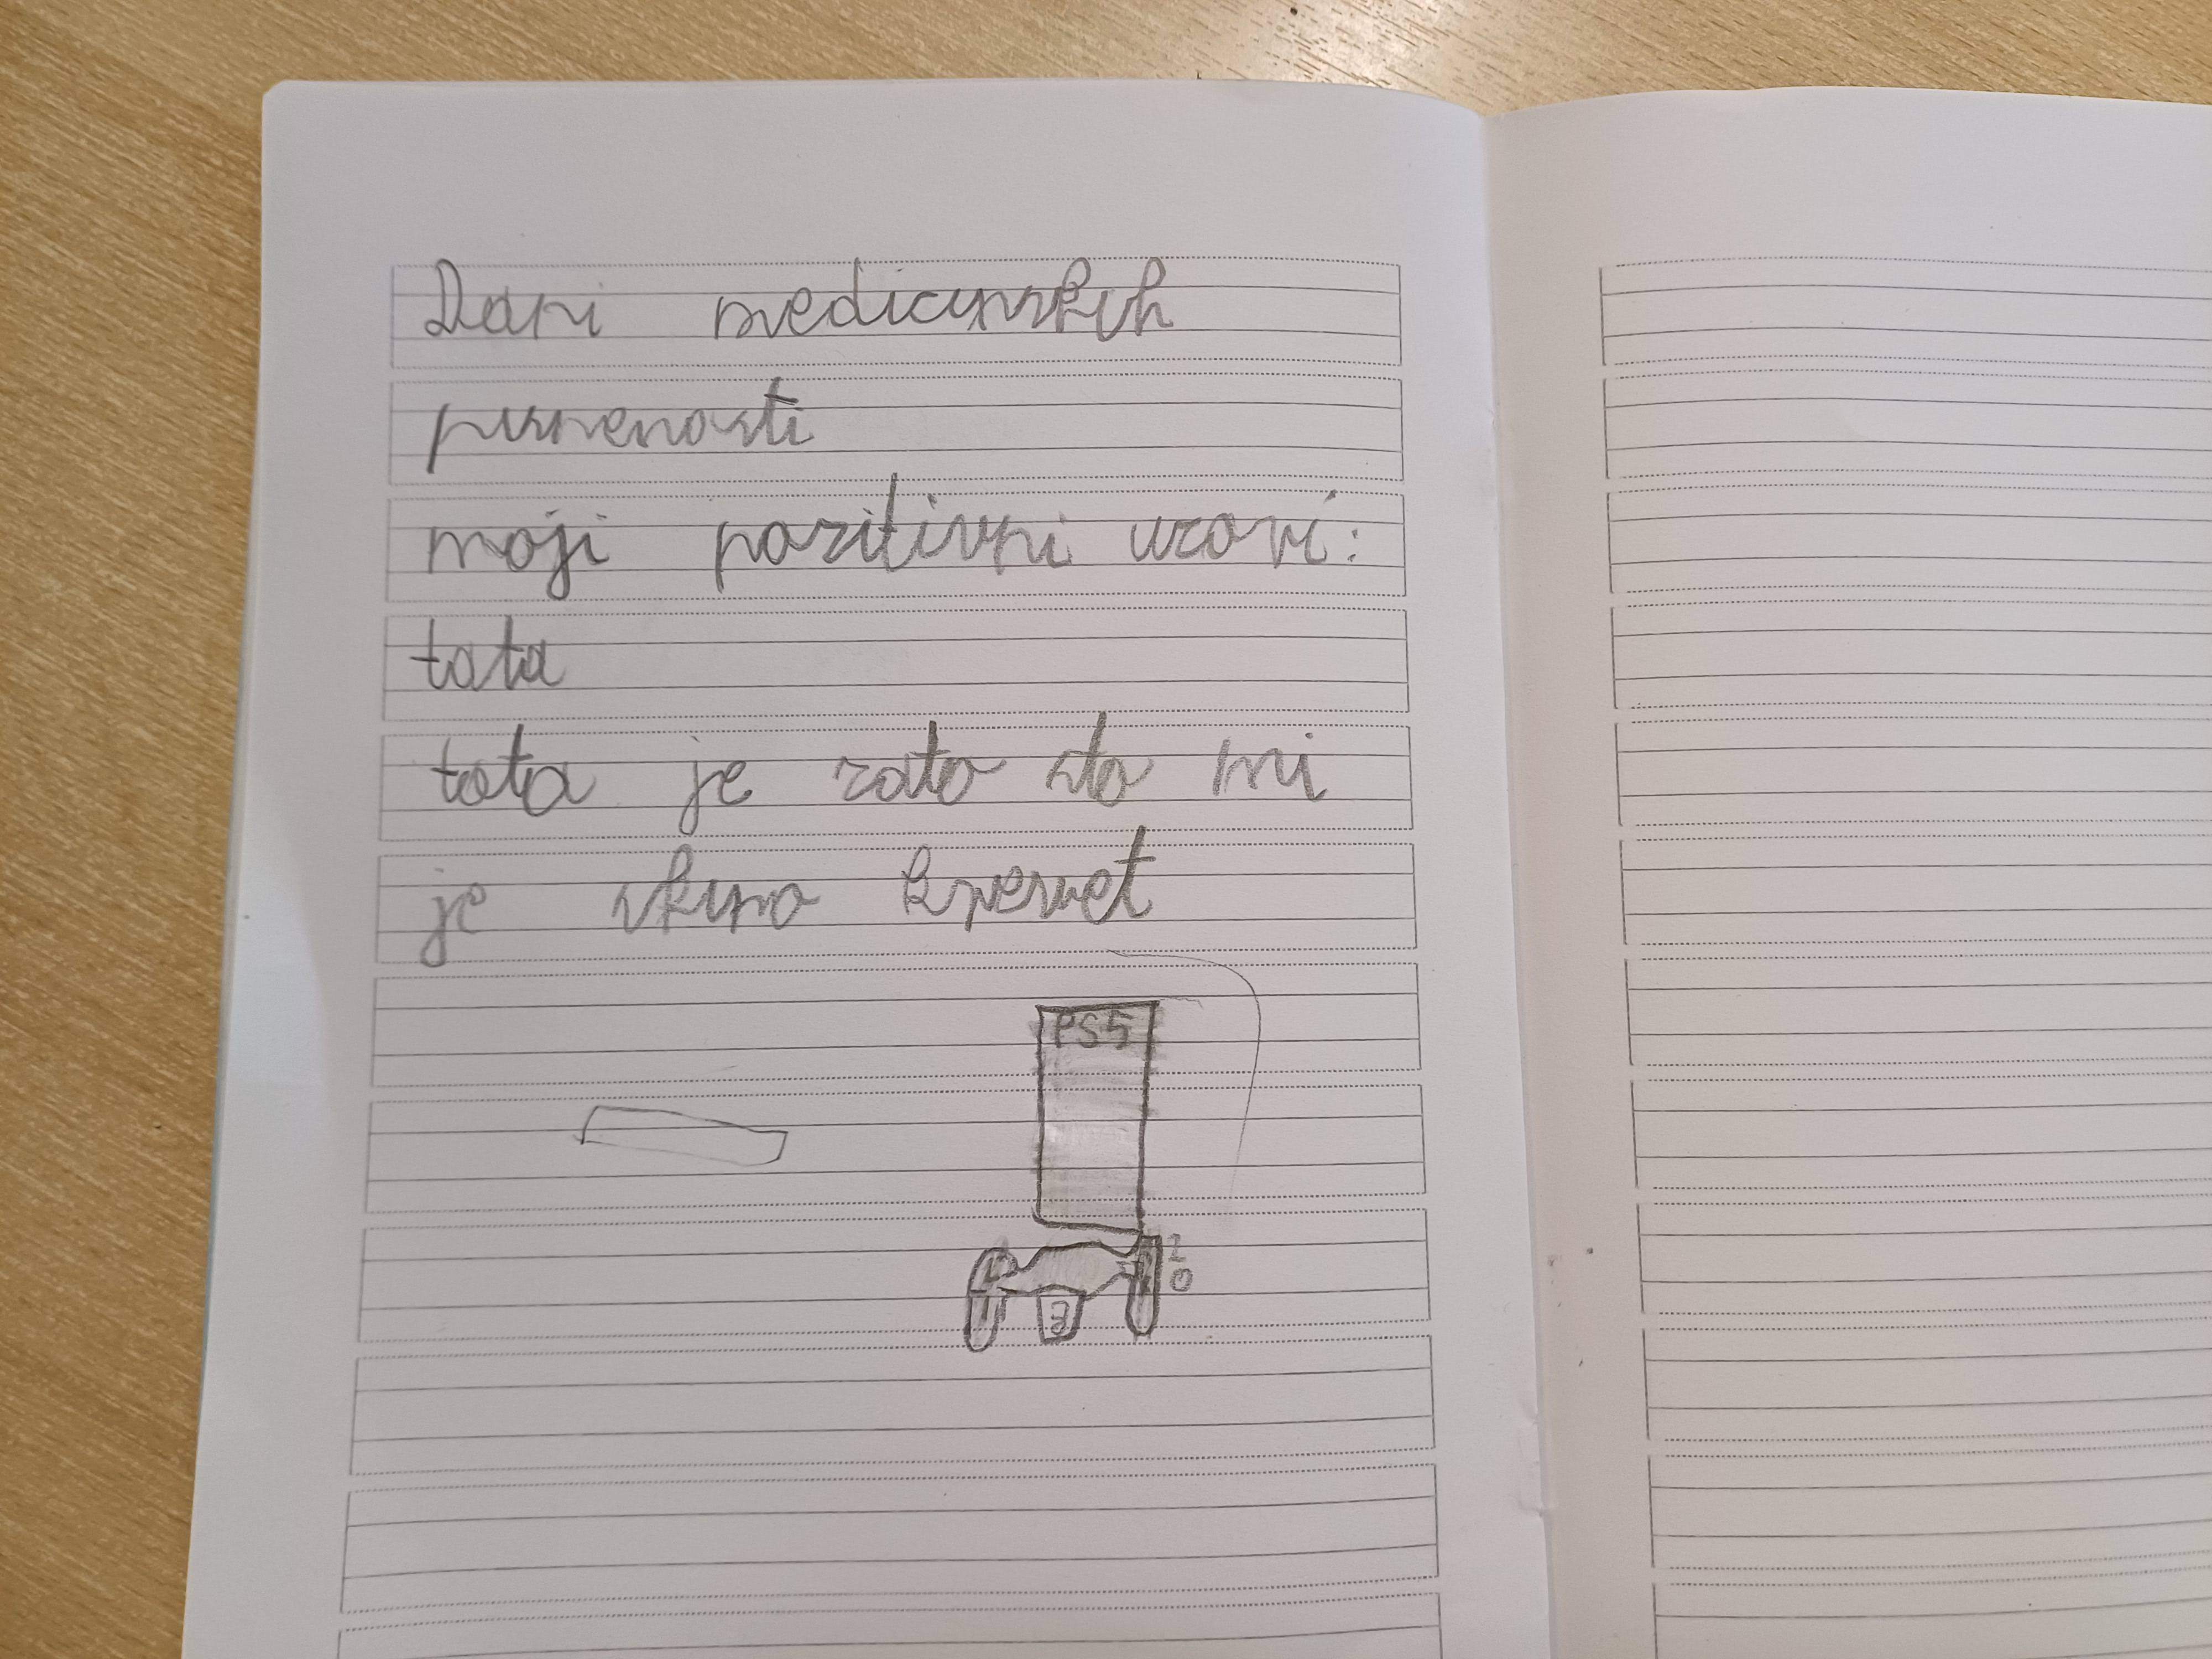 Dani medicinskih
pismenosti
moji pozitivni uzori:
tata
tata je zato sto mi
je skino krevet
PS5
2
0
3